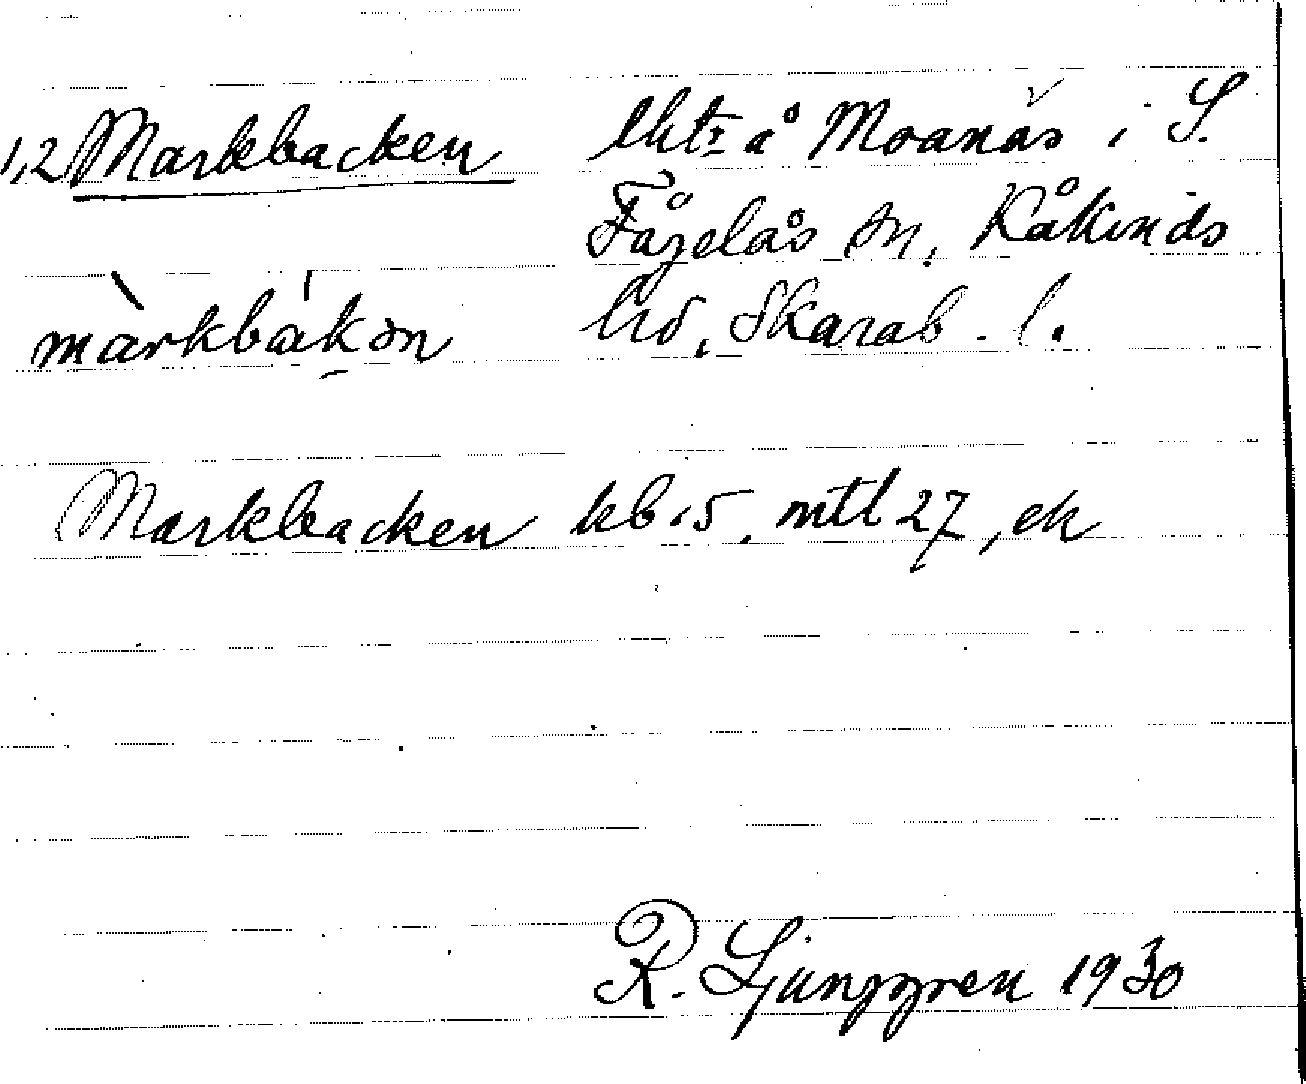 1,2 Markbacken lht:r å Moanäs i S.
Fågelås sn, Kåkinds
màrkbák̠ən hd, Skarab. l.
Markbacken kb.5, mtl 27, ek
R. Ljunggren 1930